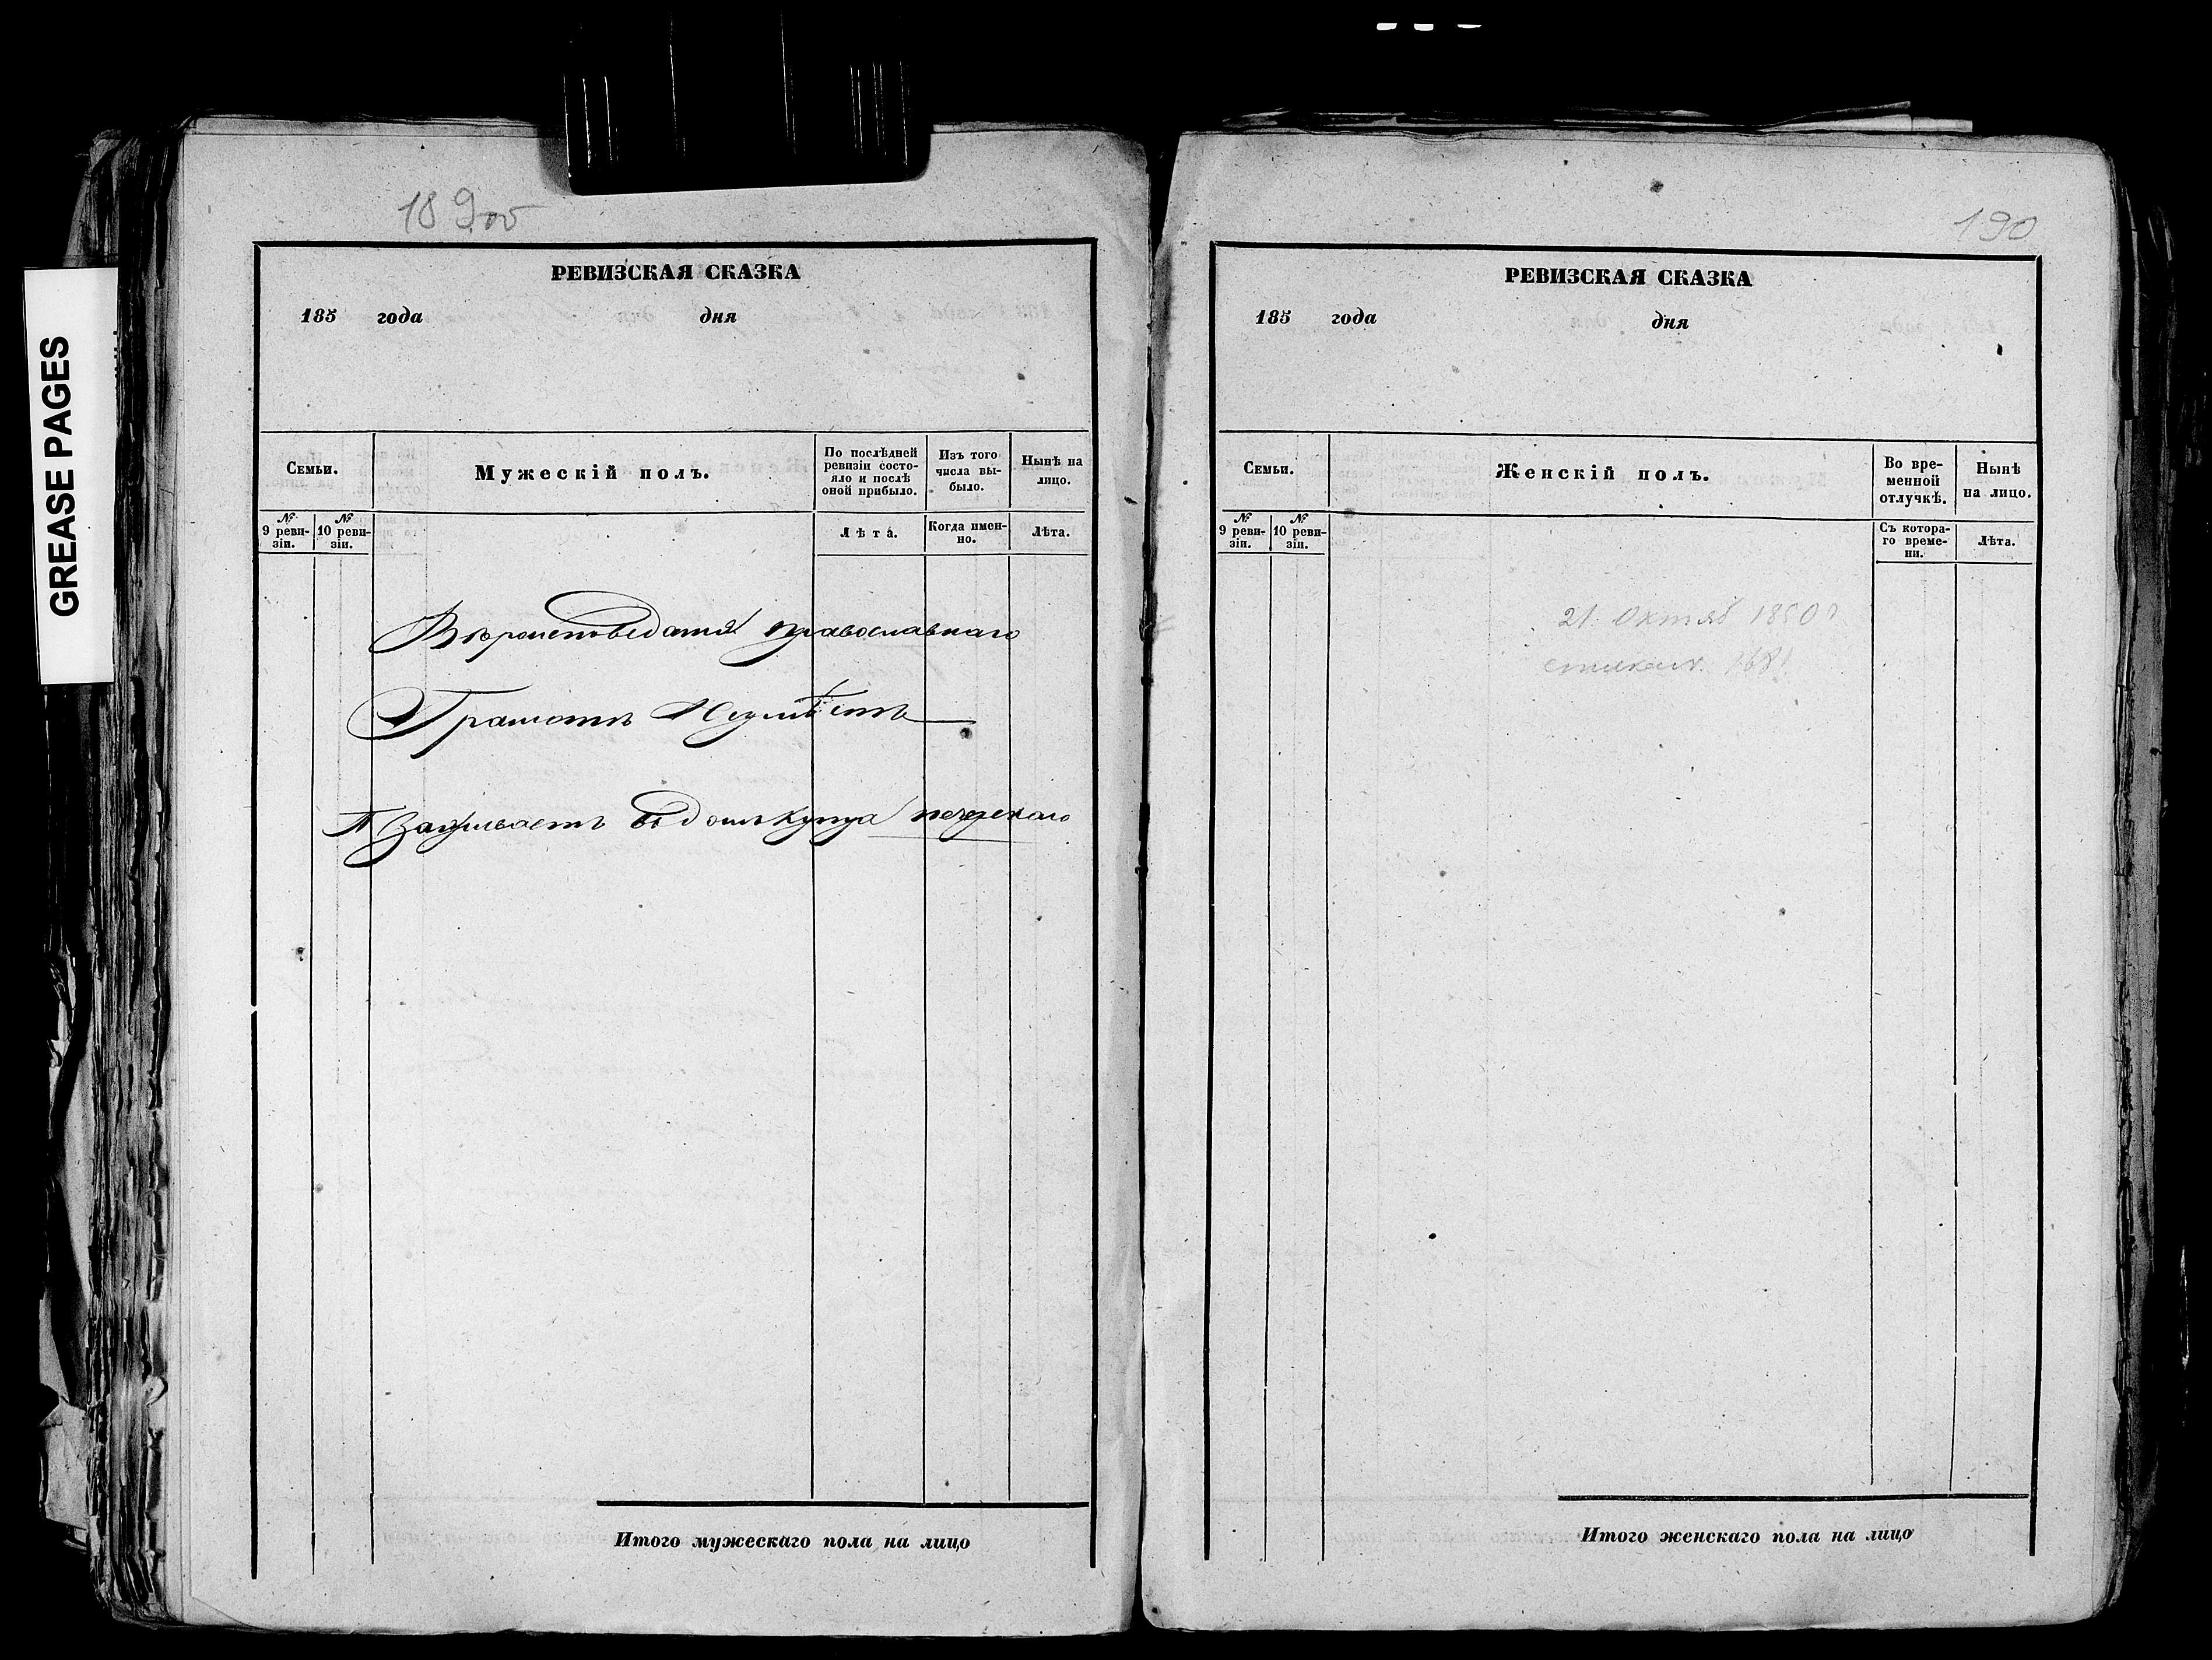 GREASE PAGES
189 об
РЕВИЗСКАЯ СКАЗКА
185 года дня
Семьи.
Мужескій полъ.
По послѣдней ревизіи состояло и послѣ оной прибыло.
Изъ того числа выбыло.
Нынѣ на лицо.
№ 9 ревизіи.
№ 10 ревизіи.
Лѣта.
Когда именно.
Лѣта.
Вѣроисповеданія православнаго
Грамотѣ Неумѣетъ
въ домѣ купца
Итого мужескаго пола на лицо
190
РЕВИЗСКАЯ СКАЗКА
185 года дня
Семьи.
Женскій полъ.
Во временной отлучкѣ.
Нынѣ на лицо.
№ 9 ревизіи.
№ 10 ревизіи.
Съ котораго времени.
Лѣта.
21 Октяб 1850 г
Итого женскаго пола на лицо